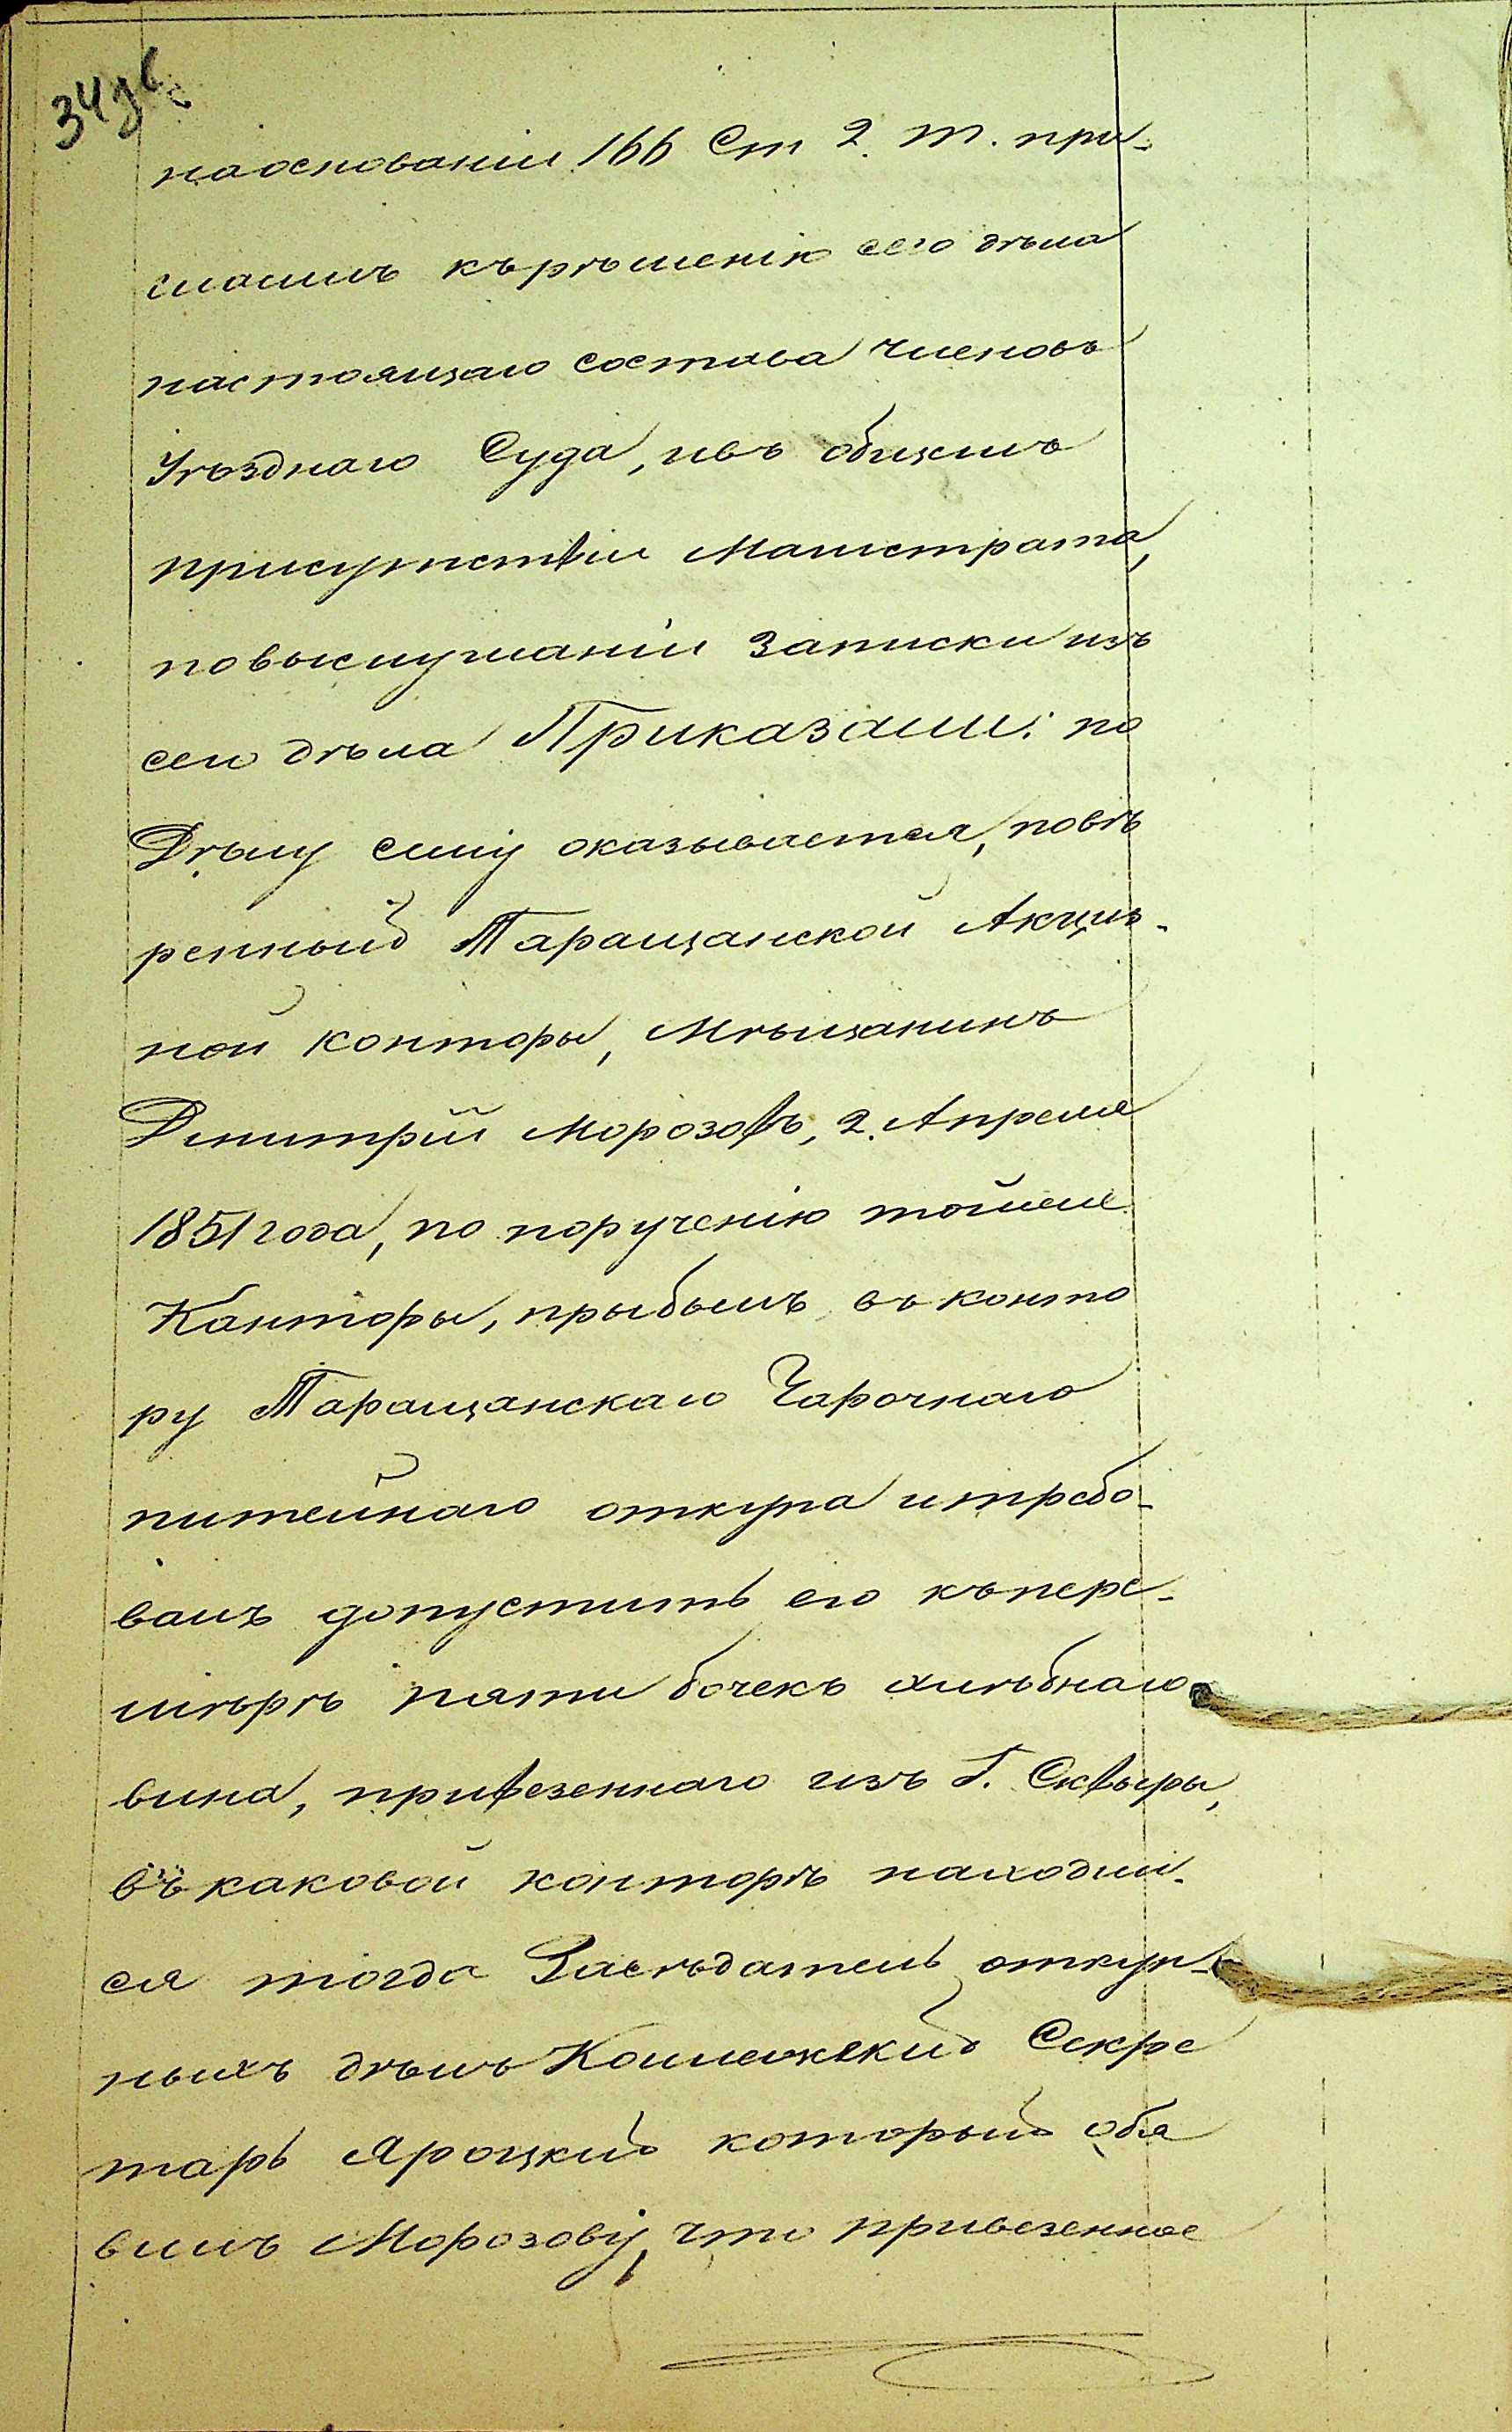 34 об
наоснованіи 166 Ст 2. т. при-
гласилъ къ рѣшенію сего дѣла
настоящаго состава членовъ
Уѣзднаго Суда, ивъ общемъ
присутствіи Магистрата,
повыслушаніи Записки изъ
сего дѣла Приказали: по
Дѣлу сему оказывается, повѣ
ренный Таращанской Акциз-
ной конторы, Мѣщанинъ
Дмитрій Морозовъ, 2. Апреля
1851 года, по порученію тойже
Конторы, прыбылъ въ конто
ру Таращанскаго Чарочнаго
питейнаго откупа итребо-
валъ допустить его къ пере-
мѣрѣ пяти бочекъ хлѣбнаго
вина, привезеннаго изъ Г. Сквыры,
въ каковой конторѣ находил-
ся тогда Засѣдатель откуп-
ныхъ дѣлъ Секре
тарь Яроцкій который обя
вилъ Морозову, что привезенное